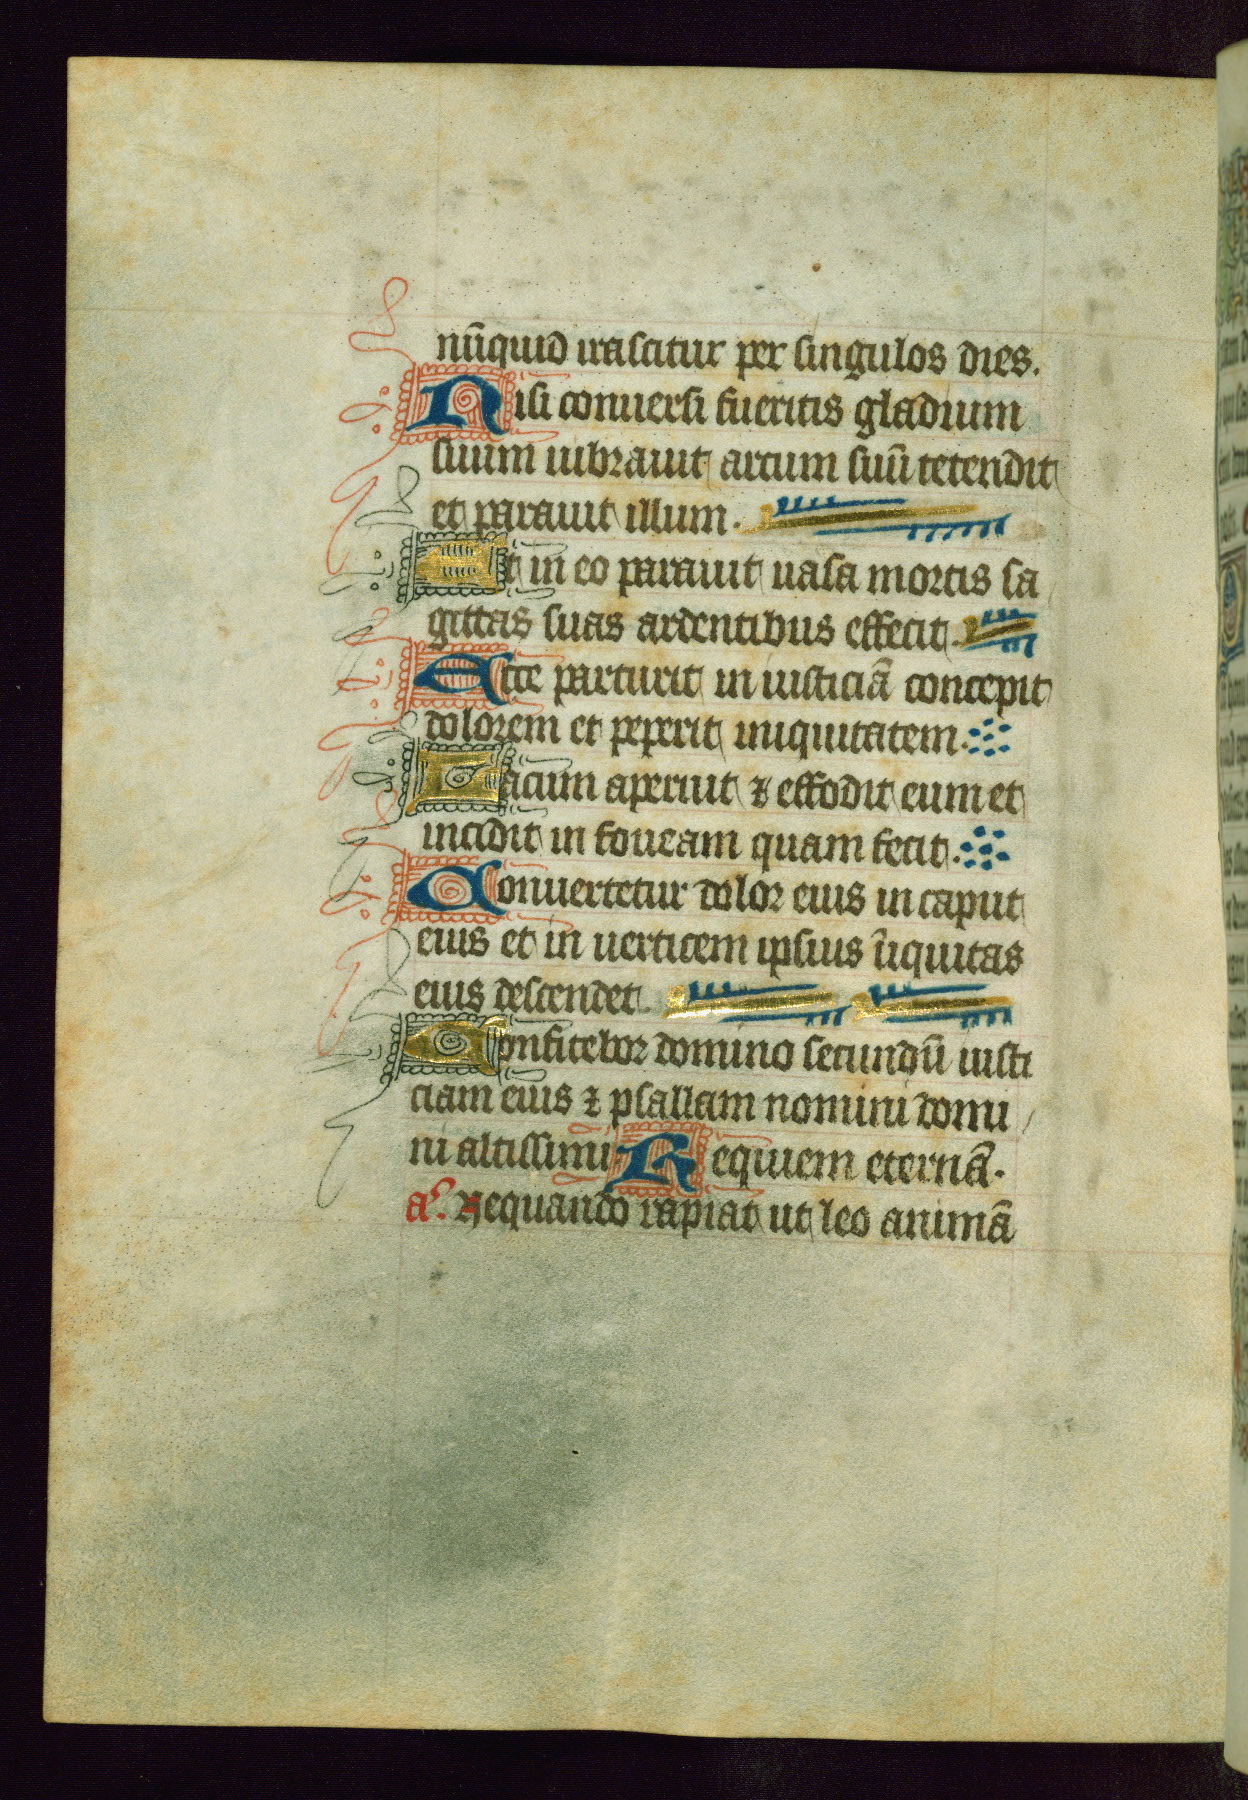 nūquid irascitur per singulos dies.
Nisi conuersi fueritis gladium
suum uibrauit arcum suū tetendit
et parauit illum.
Et in eo parauit uasa mortis sa
gittas suas ardentibus effecit.
Ecce parturit in iusticiā concepit
dolorem et peperit iniquitatem.
Lacum aperuit ⁊ effodit eum et
incidit in foueam quam fecit.
Conuertetur dolor eius in caput
eius et in uerticem ipsius īiquitas
eius descendet.
Confitebor domino secundū iusti
ciam eius ⁊ psallam nomini domi
ni altissimi Requiem eternā.
aͥ. Nequando rapiat ut leo animā